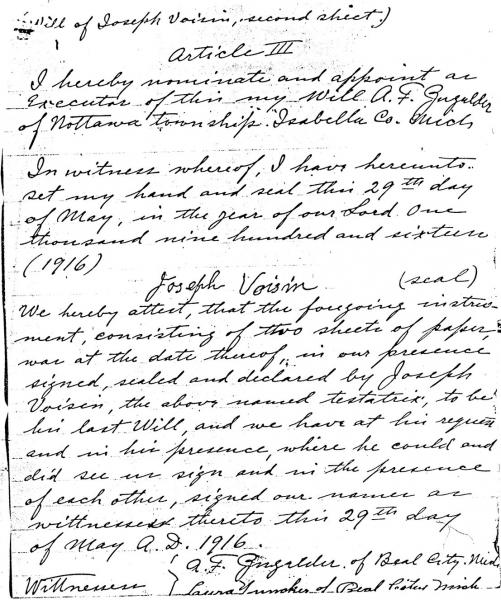 (Will of Joseph Voisin, second sheet)
Article III
I hereby nominate and appoint as
Executor of this my Will A. F.
of Nottawa township. Isabella Co. Mich
In witness whereof, I have hereunto
set my hand and seal this 29th day
of May, in the year of our Lord One
thousand nine hundred and sixteen
(1916)
Joseph Voisin (seal)
We hereby attest, that the foregoing instru-
ment, consisting of two sheets of paper,
was at the date thereof, in our presence
signed, sealed and declared by Joseph
Voisin, the above named testatrix, to be
his last Will, and we have at his request
and in his presence, where he could and
did see us sign and in the presence
of each other, signed our names as
wittnesses thereto this 29th day
of May A.D. 1916.
A. F. of Beal City. Mich
Wittnesses Laura of Beal City Mich